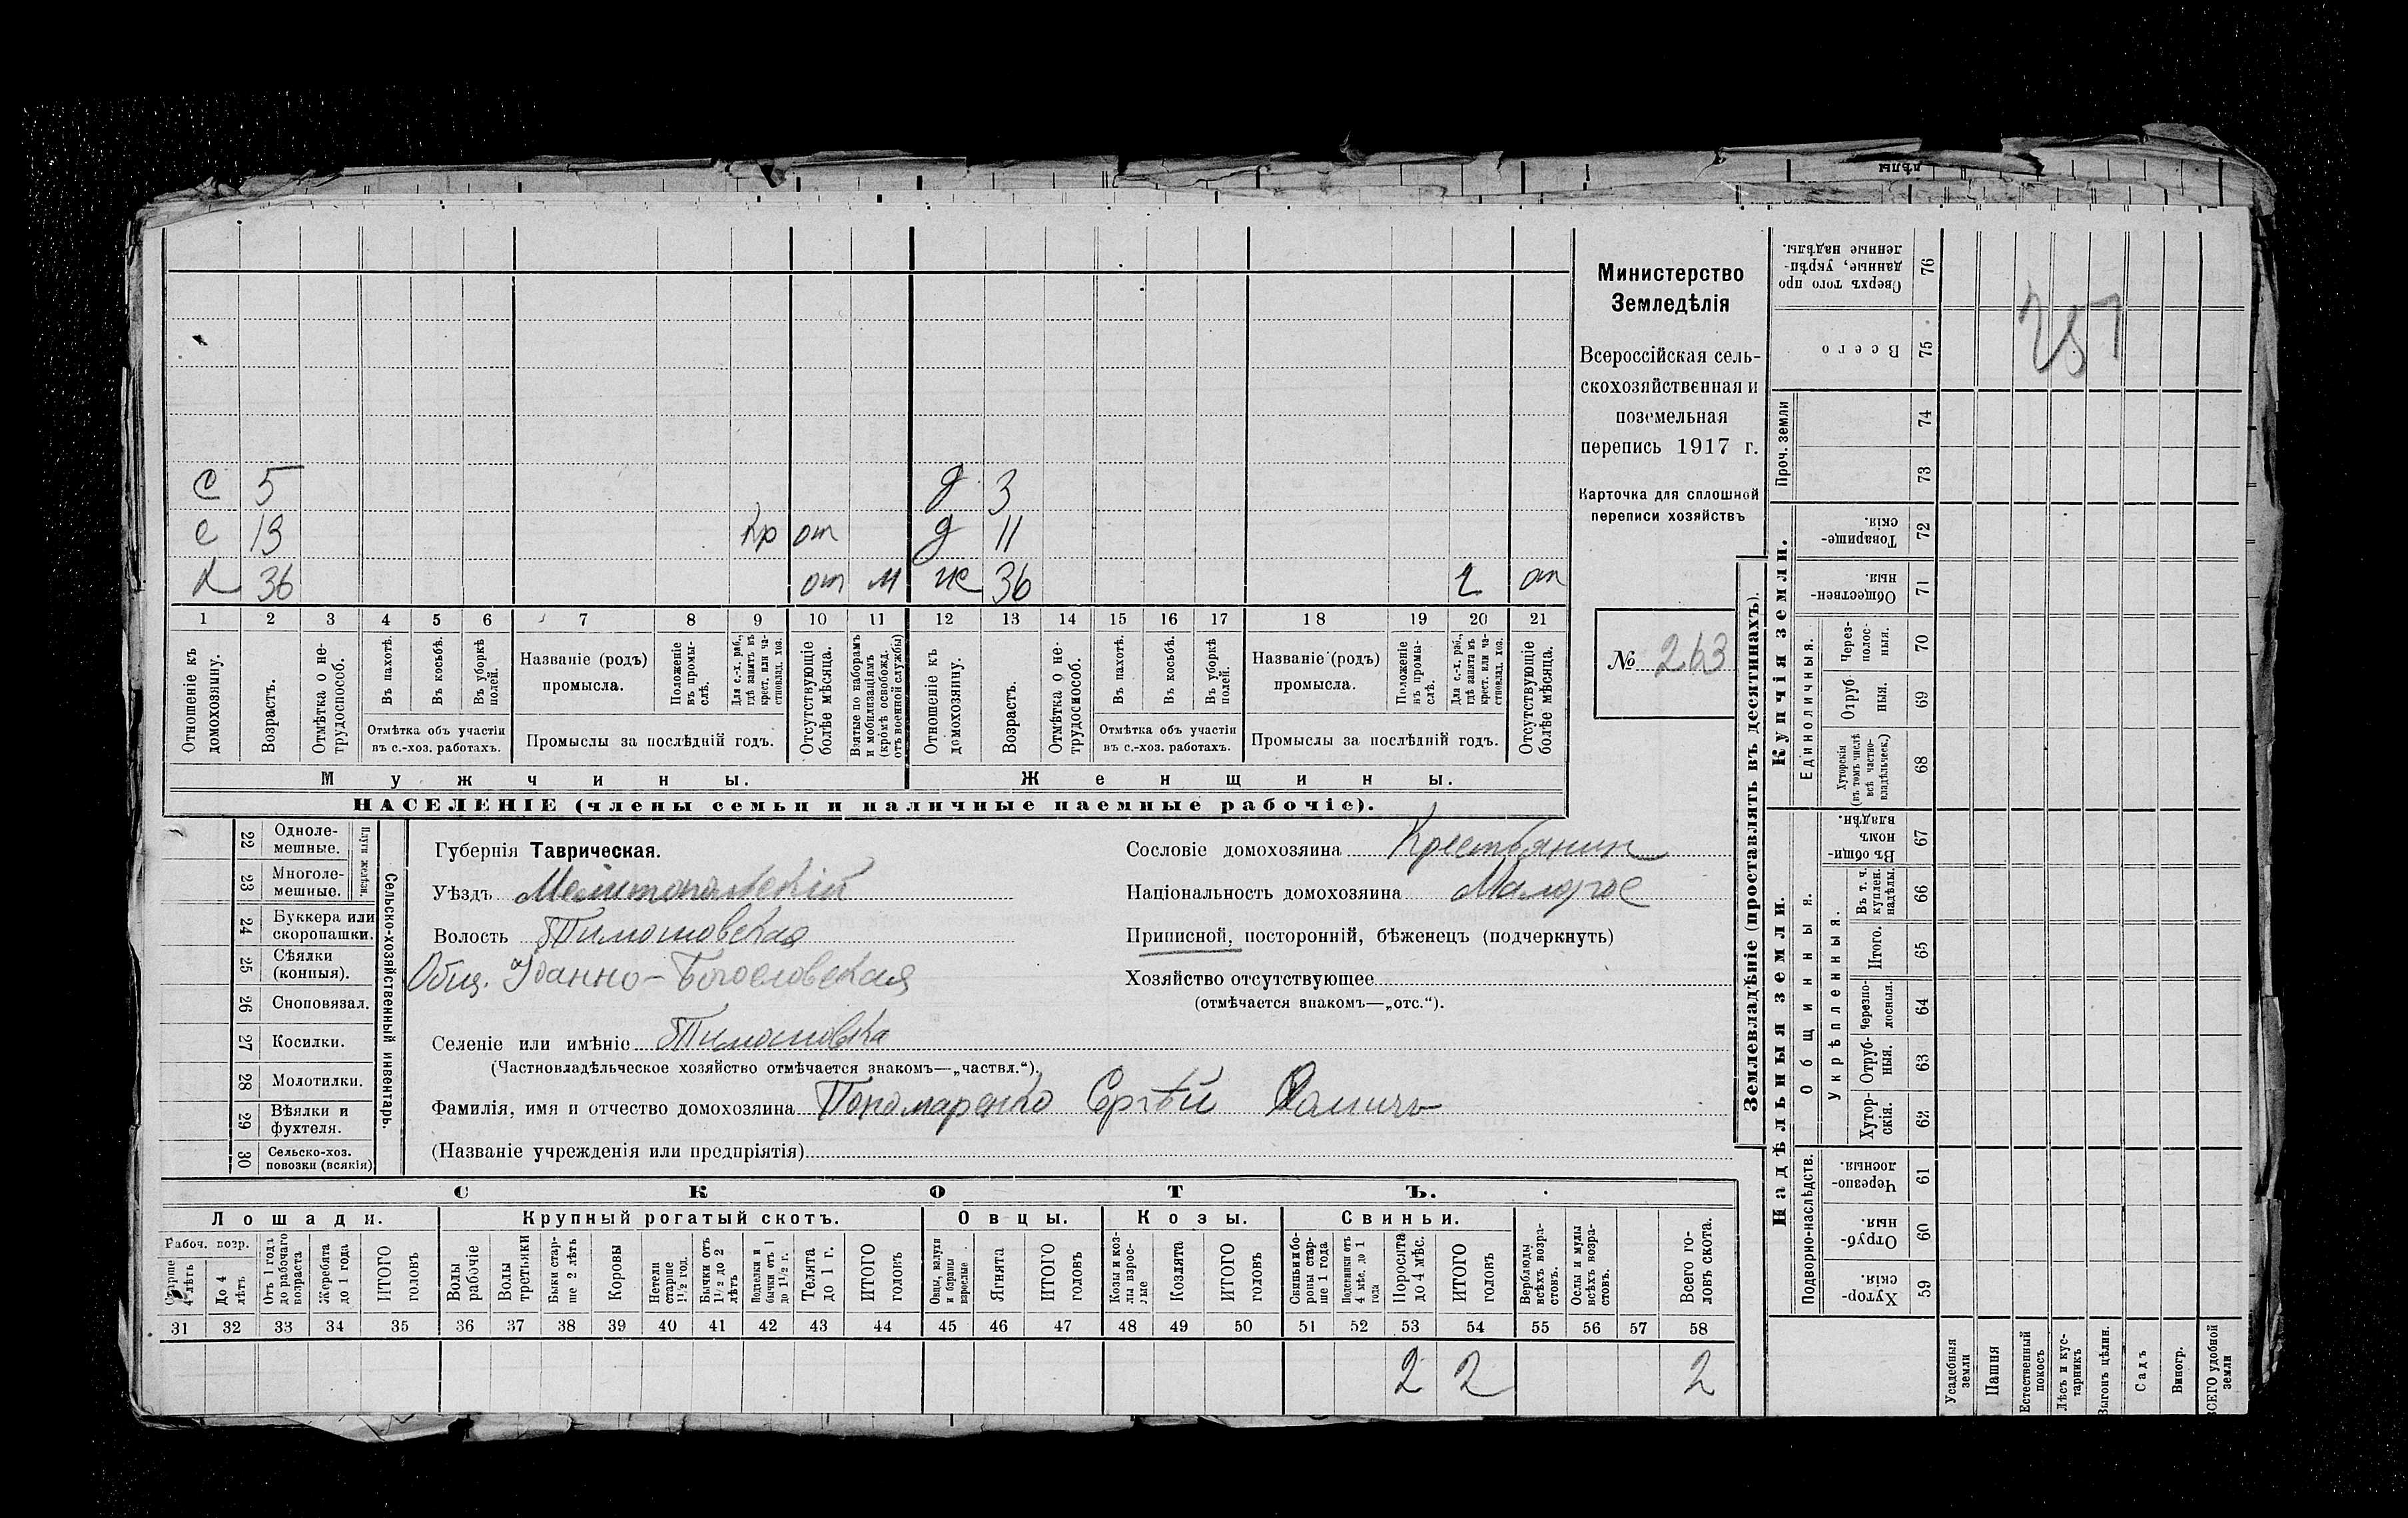 дѣлы
С 5 д 3
с 13 Кр от д 11
х 36 от м ж 36 1 от
1 2 3 4 5 6 7 8 9 10 11 12 13 14 15 16 17 18 19 20 21
Отношеніе къ домохозяину.
Возрастъ.
Отмѣтка о нетрудоспособ.
Въ пахотѣ.
Въ косьбѣ.
Въ уборкѣ полей.
Отмѣтка объ участіи въ с.-хоз. работахъ.
Названіе (родъ) промысла.
Положеніе въ промыслѣ.
Для с.-х. раб., гдѣ занятъ въ крест. или частновлад. хоз.
Промыслы за послѣдній годъ.
Отсутствующіе болѣе мѣсяца.
Взятые по наборамъ и мобилизаціямъ (кромѣ освобожд. отъ военной службы)
Отношеніе къ домохозяину.
Возрастъ.
Отмѣтка о нетрудоспособ.
Въ пахотѣ.
Въ косьбѣ.
Въ уборкѣ полей.
Отмѣтка объ участіи въ с.-хоз. работахъ.
Названіе (родъ) промысла.
Положеніе въ промыслѣ.
Для с.-х. раб., гдѣ занята въ крест. или частновлад. хоз.
Промыслы за послѣдній годъ.
Отсутствующіе болѣе мѣсяца.
Мужчины. Женщины.
НАСЕЛЕНІЕ (члены семьи и наличные наемные рабочіе).
Министерство
Земледѣлія
Всероссійская сель-
скохозяйственная и
поземельная
перепись 1917 г.
Карточка для сплошной
переписи хозяйствъ
№ 263
22 Одноле-
мешные.
23 Многоле-
мешные.
Плуги желѣзн.
24 Буккера или
скоропашки.
25 Сѣялки
(конныя).
26 Сноповязал.
27 Косилки.
28 Молотилки.
29 Вѣялки и
фухтеля.
30 Сельско-хоз.
повозки (всякія)
Сельско-хозяйственный инвентарь.
Губернія Таврическая.
Уѣздъ Мелитопольскій
Волость Тимошовская
Общ. Іоанно-Богословская
Селеніе или имѣніе Тимошовка
(Частновладѣльческое хозяйство отмѣчается знакомъ—„частвл.“).
Фамилія, имя и отчество домохозяина Пономаренко Сергѣй
(Названіе учрежденія или предпріятія)
Сословіе домохозяина Крестьянин
Національность домохозяина
Приписной, посторонній, бѣженецъ (подчеркнуть)
Хозяйство отсутствующее
(отмѣчается знакомъ—„отс.“).
СКОТЪ.
Лошади. Крупный рогатый скотъ. Овцы. Козы. Свиньи.
Рабоч. возр.
Старше 4 лѣтъ
До 4 лѣтъ
Отъ 1 года до рабочаго возраста
Жеребята до 1 года
ИТОГО головъ
Волы рабочіе
Волы третьяки
Быки старше 2 лѣтъ
Коровы
Нетели старше 1½ год.
Бычки отъ 1½ до 2 лѣтъ
Подтелки и бычки отъ 1 до 1½ г.
Телята до 1 г.
ИТОГО головъ
Овцы, валухи и бараны взрослые
Ягнята
ИТОГО головъ
Козы и козлы взрослые
Козлята
ИТОГО головъ
Свиньи и боровы старше 1 года
Подсвинки отъ 4 мѣс. до 1 года
Поросята до 4 мѣс.
ИТОГО головъ
Верблюды всѣхъ возрастовъ.
Ослы и мулы всѣхъ возрастовъ.
Всего головъ скота.
31 32 33 34 35 36 37 38 39 40 41 42 43 44 45 46 47 48 49 50 51 52 53 54 55 56 57 58
2 2 2
Землевладѣніе (проставлять въ десятинахъ).
Сверхъ того проданные, укрѣпленные надѣлы. 76
Всего 75
257
Проч. земли 74
73
Купчія земли.
Товарищескія. 72
Общественныя. 71
Единоличныя.
Черезполосныя. 70
Отрубныя. 69
Хуторскія (въ томъ числѣ всѣ частновладѣльческ.) 68
Надѣльныя земли.
Общинныя.
Въ общинномъ владѣн. 67
Укрѣпленныя.
Въ т. ч. куплен. надѣлы. 66
Итого. 65
Черезполосныя. 64
Отрубныя. 63
Хуторскія. 62
Подворно-наслѣдств.
Черезполосныя. 61
Отрубныя. 60
Хуторскія. 59
Усадебныя земли
Пашня
Естественный покосъ
Лѣсъ и кустарникъ
Выгонъ цѣлин.
Садъ
Виногр.
ВСЕГО удобной земли